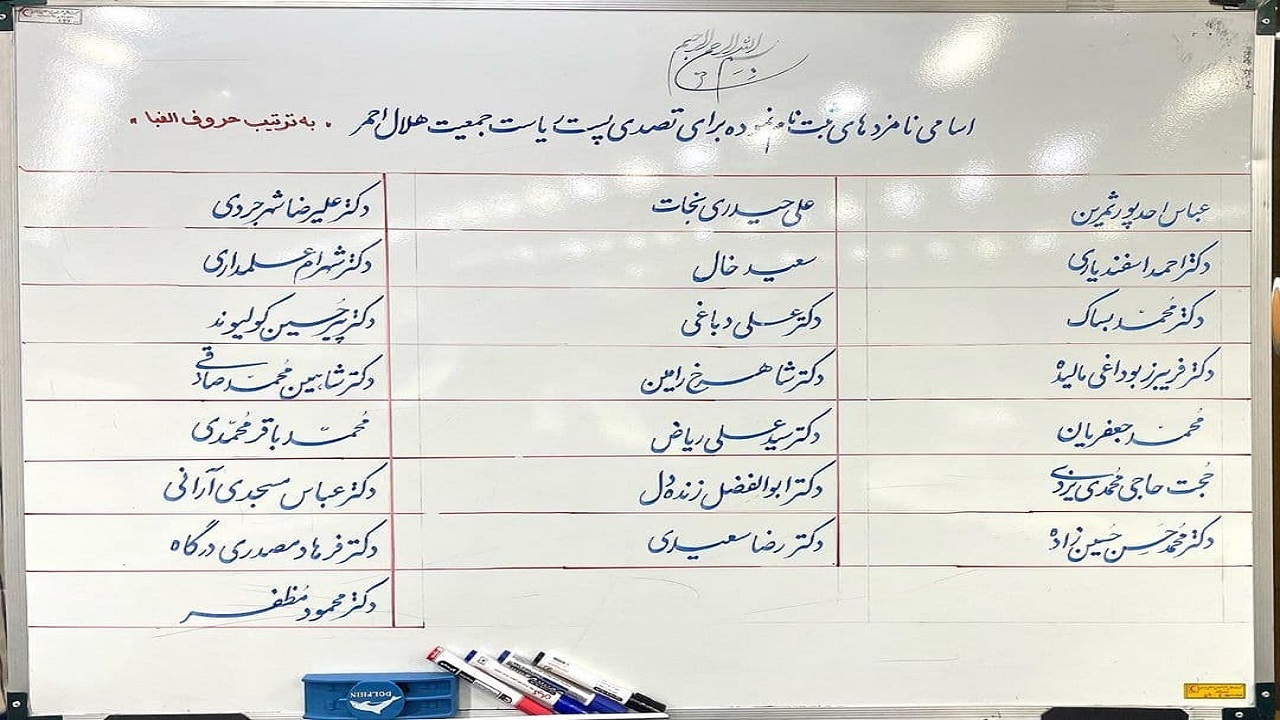 بسم الله الرحمن الرحیم
اسامی نامزدهای ثبت نام نموده برای تصدی پست ریاست جمعیت هلال احمر "به ترتیب حروف الفبا"
عباس احدپور ثمرین
دکتر احمد اسفندیاری
دکتر محمد بساک
دکتر فریبرز بوداغی مالیده
محمد جعفریان
حجت حاجی محمدی یزدی
دکتر محمدحسن حسین زاده
علی حیدری نجات
سعید خال
دکتر علی دباغی
دکتر شاهرخ رامین
دکتر سید علی ریاض
دکتر ابوالفضل زنده دل
دکتر رضا سعیدی
دکتر علیرضا شهرجردی
دکتر شهرام علمداری
دکتر پیرحسین کولیوند
دکتر شاهین محمدصادقی
محمد باقر محمدی
دکتر عباس مسجدی آرانی
دکتر فرهاد مصدری درگاه
دکتر محمود مظفر
DOLPHIN